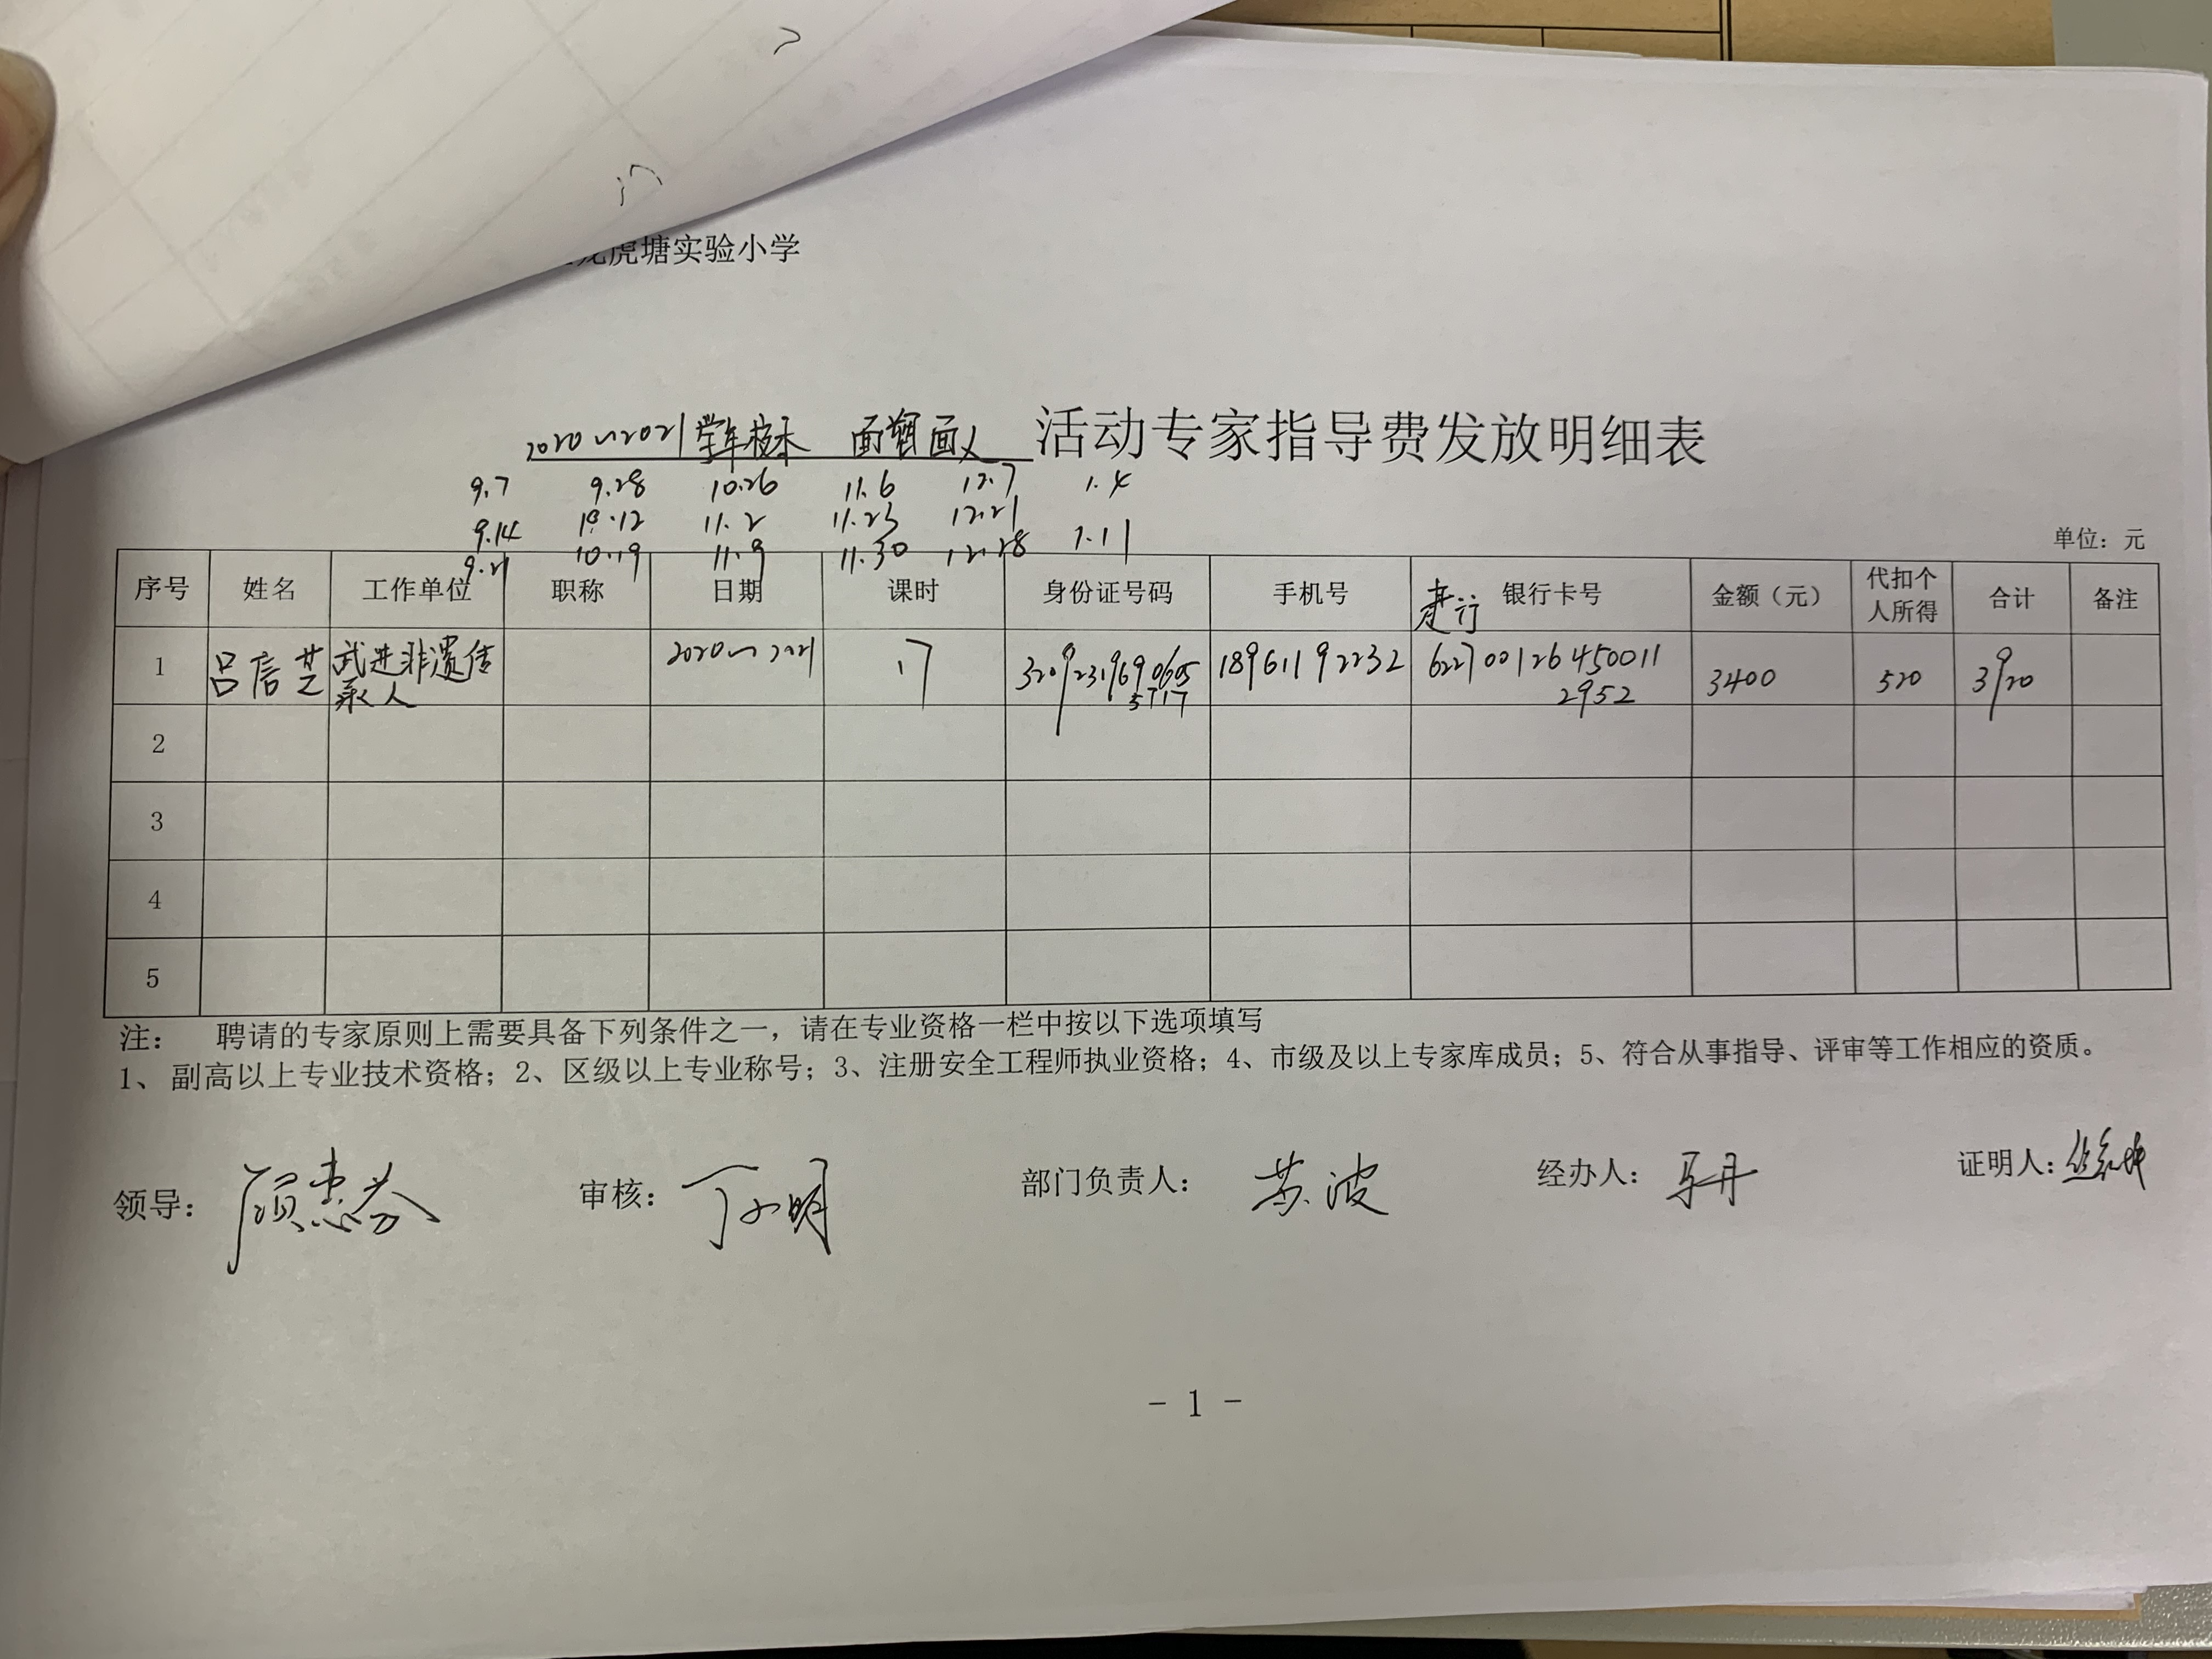 虎塘实验小学
2020~2021学年校本 面塑面人 活动专家指导费发放明细表
9.7 9.28 10.26 11.6 12.7 1.4
9.14 10.12 11.2 11.23 12.21 1.11
9.21 10.19 11.9 11.30 12.28
单位：元
序号 姓名 工作单位 职称 日期 课时 身份证号码 手机号 建行 银行卡号 金额（元） 代扣个人所得 合计 备注
1 吕信芝 武进非遗传承人 2020~2021 17 320923196906055717 18961192232 6227001264500112952 3400 520 3920
2
3
4
5
注： 聘请的专家原则上需要具备下列条件之一，请在专业资格一栏中按以下选项填写
1、副高以上专业技术资格；2、区级以上专业称号；3、注册安全工程师执业资格；4、市级及以上专家库成员；5、符合从事指导、评审等工作相应的资质。
领导：顾惠芬 审核：丁小明 部门负责人：苏波 经办人：马丹 证明人：
- 1 -